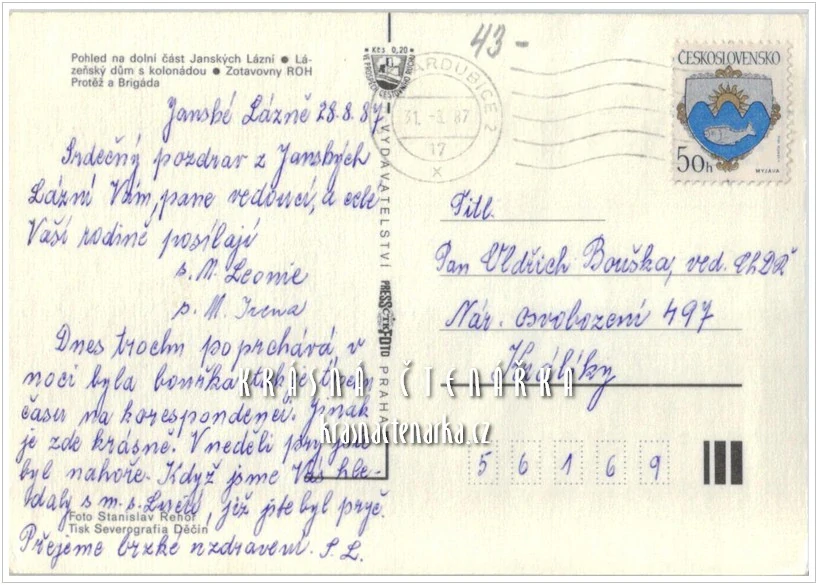 Pohled na dolní část Janských Lázní ● Lá-
zeňský dům s kolonádou ● Zotavovny ROH
Protěž a Brigáda
Janské Lázně 28.8.87
Srdečný pozdrav z Janských
Lázní Vám, pane vedoucí, a celé
Vaší rodině posílají
s. M. Leonie
s. M. Irena
Dnes trochu poprchává, v
noci byla bouřka, takže
času na korespondenci. Jinak
je zde krásně. V neděli prý jste
byl nahoře. Když jsme Vás hle-
daly s m. s. již jste byl pryč.
Přejeme brzké uzdravení. S. L.
Foto Stanislav Řehoř
Tisk Severografia Děčín
Kčs 0,20
VYDAVATELSTVÍ PRESSFOTO PRAHA
ČTK
43-
PARDUBICE 2
31.-8.87
17
x
ČESKOSLOVENSKO
50h
MYJAVA
Titl.
Pan Oldřich Bouška, ved. ChDŘ
Nár. osvobození 497
Králíky
56169
KRÁSNÁ ČTENÁŘKA
krasnactenarka.cz